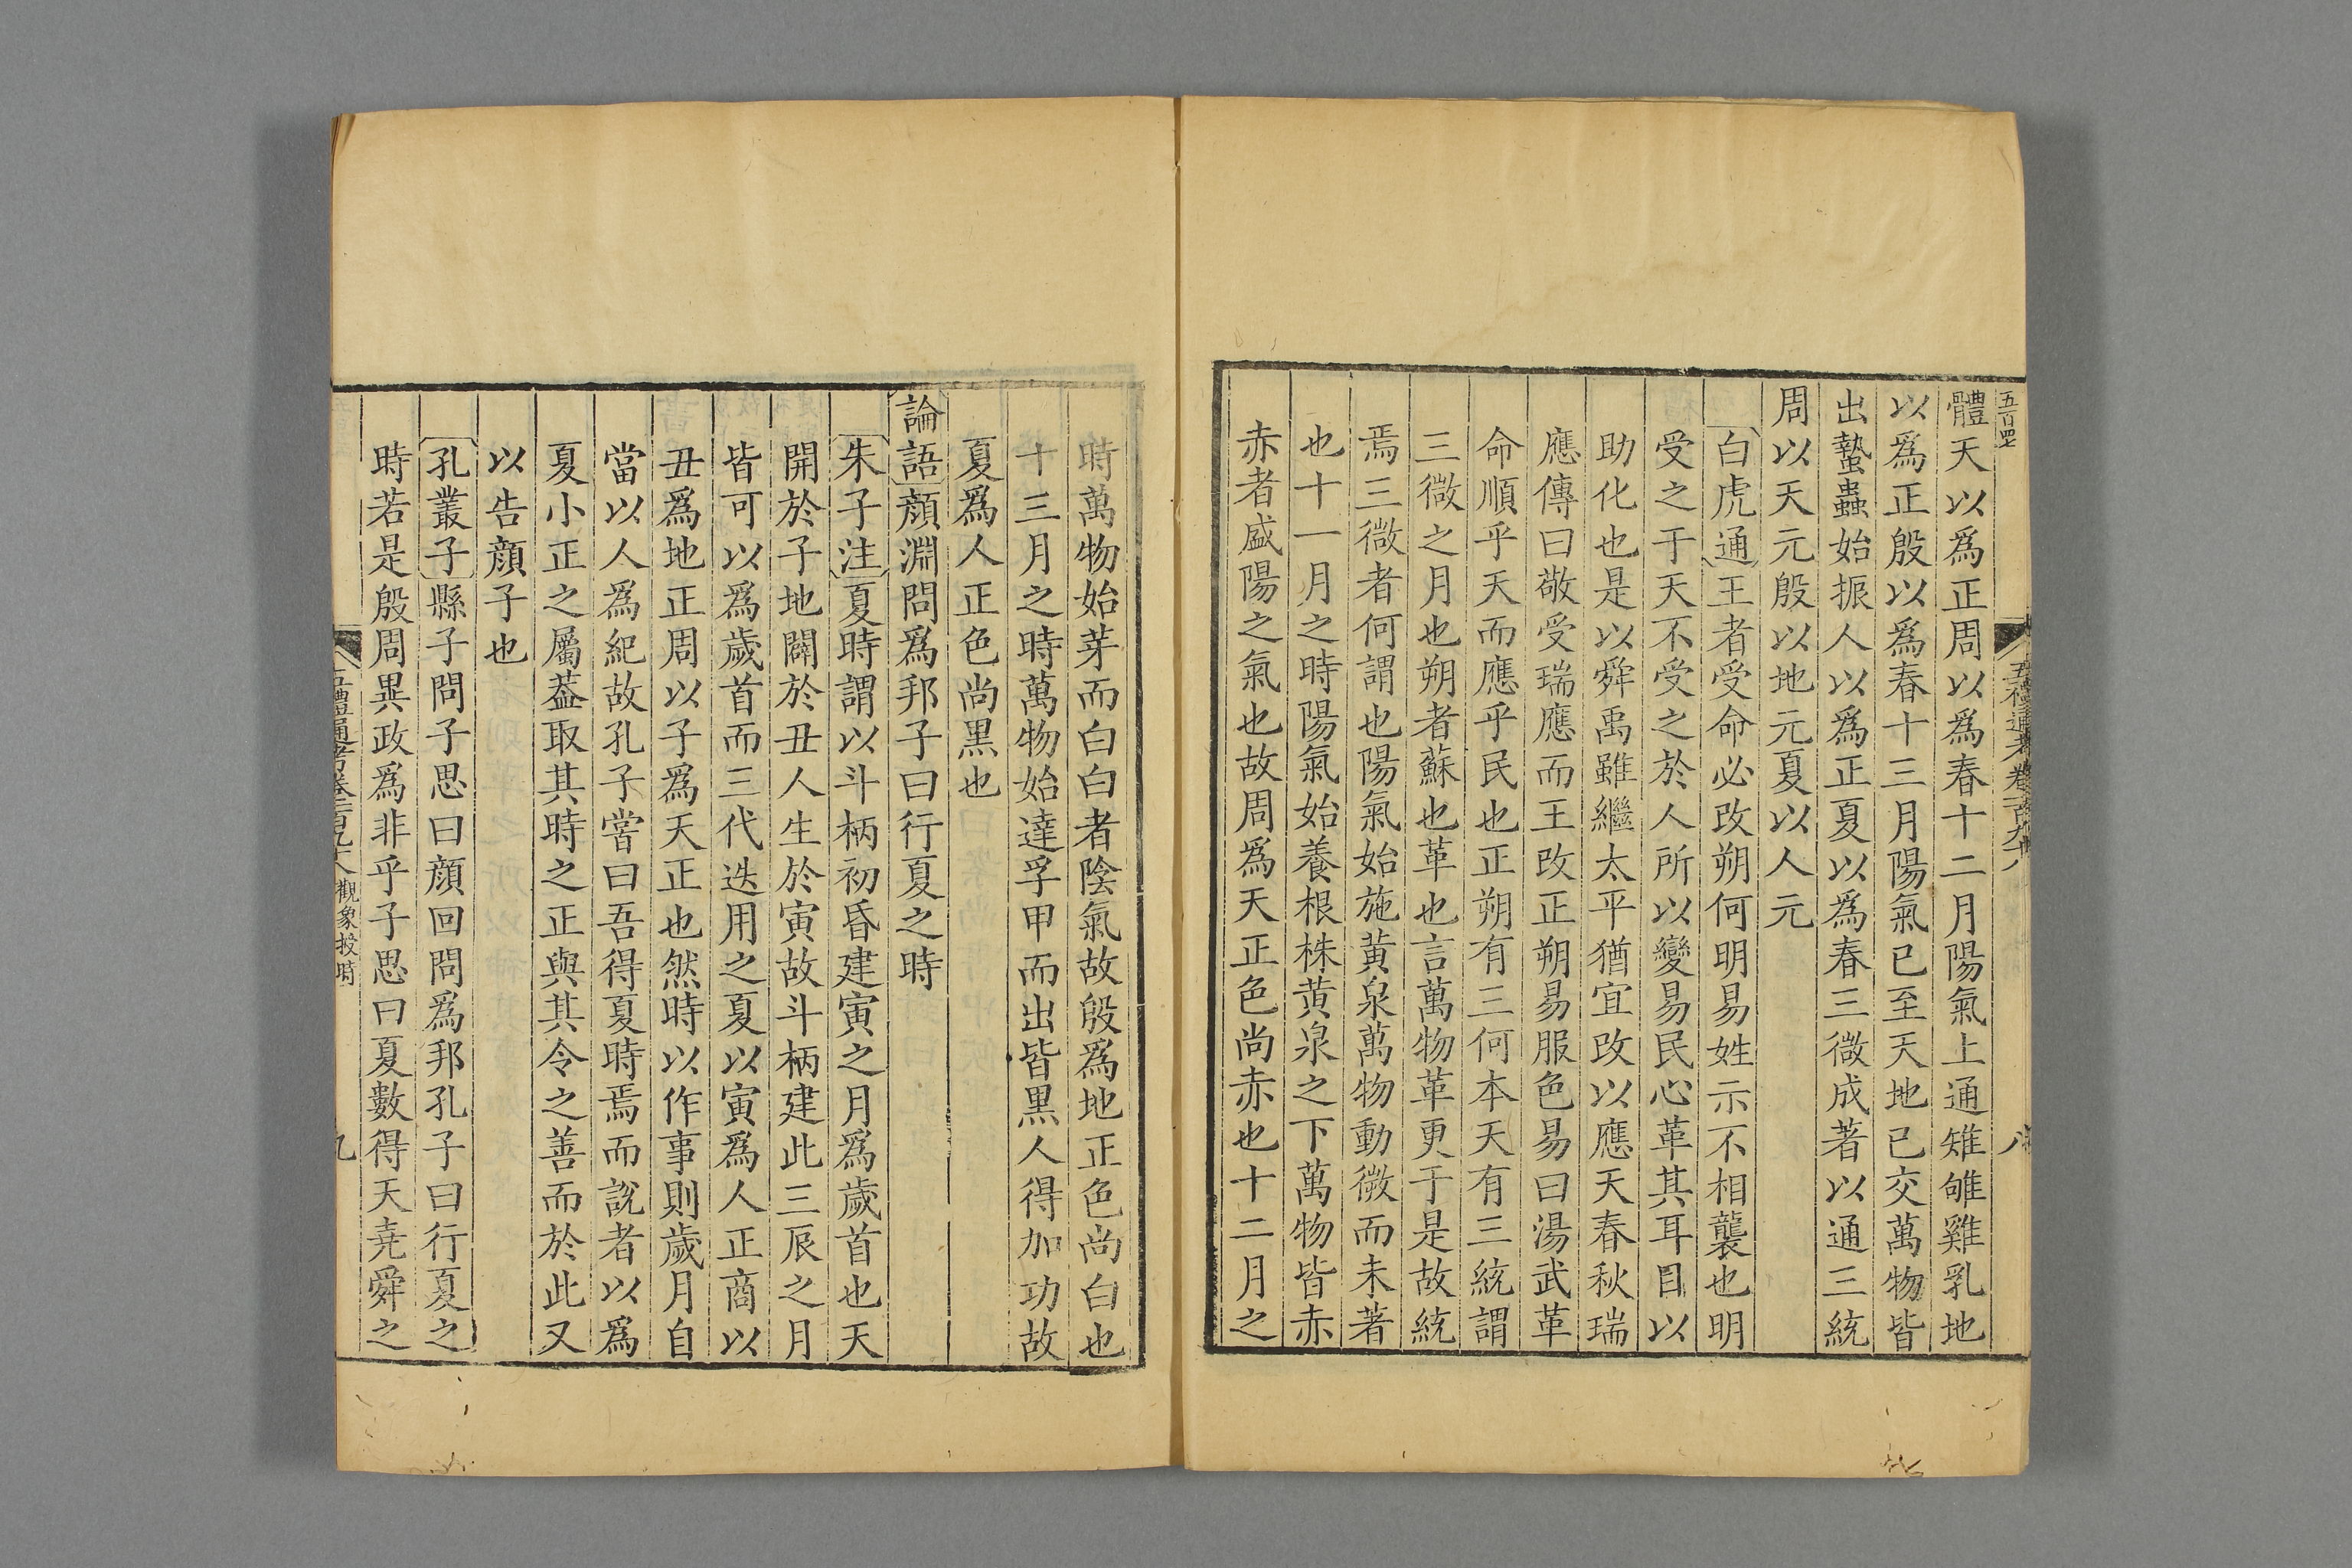 五百四七
五禮通考卷一百九十八
八
體天以爲正周以爲春十二月陽氣上通雉雊雞乳地
以爲正殷以爲春十三月陽氣已至天地已交萬物皆
出蟄蟲始振人以爲正夏以爲春三微成著以通三統
周以天元殷以地元夏以人元
白虎通王者受命必改朔何明易姓示不相襲也明
受之于天不受之於人所以變易民心革其耳目以
助化也是以舜禹雖繼太平猶宜改以應天春秋瑞
應傳曰敬受瑞應而王改正朔易服色易曰湯武革
命順乎天而應乎民也正朔有三何本天有三統謂
三微之月也朔者蘇也革也言萬物革更于是故統
焉三微者何謂也陽氣始施黃泉萬物動微而未著
也十一月之時陽氣始養根株黄泉之下萬物皆赤
赤者盛陽之氣也故周爲天正色尚赤也十二月之
時萬物始芽而白白者陰氣故殷爲地正色尚白也
十三月之時萬物始達孚甲而出皆黑人得加功故
夏爲人正色尚黑也
論語顔淵問爲邦子曰行夏之時
朱子注夏時謂以斗柄初昏建寅之月爲歲首也天
開於子地闢於丑人生於寅故斗柄建此三辰之月
皆可以爲歲首而三代迭用之夏以寅爲人正商以
丑爲地正周以子爲天正也然時以作事則歲月自
當以人爲紀故孔子嘗曰吾得夏時焉而說者以爲
夏小正之屬葢取其時之正與其令之善而於此又
以告顔子也
孔叢子縣子問子思曰顔回問爲邦孔子曰行夏之
時若是殷周異政爲非乎子思曰夏數得天堯舜之
五禮通考卷一百九十八觀象授時
九